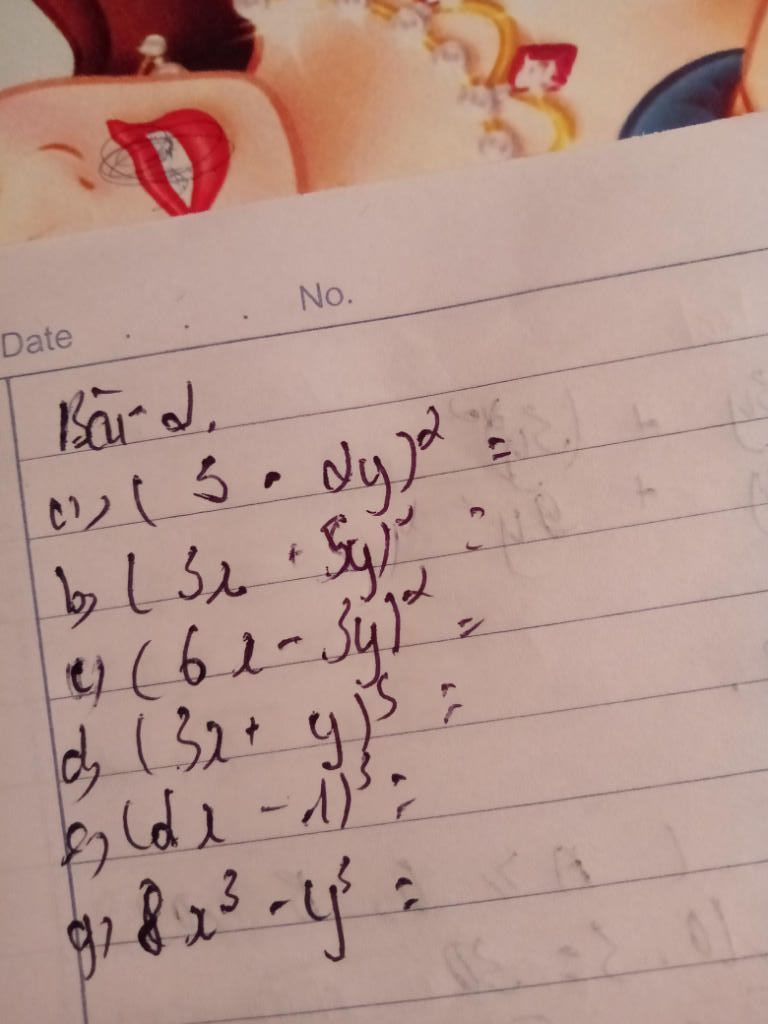 Date . . . No.
Bài 2.
a, ( 5 - 2y)² =
b, ( 3x + 5y)² =
c, ( 6x - 3y)² =
d, ( 3x + y)³ =
e, (2x - 1)³ =
g, 8x³ - y³ =